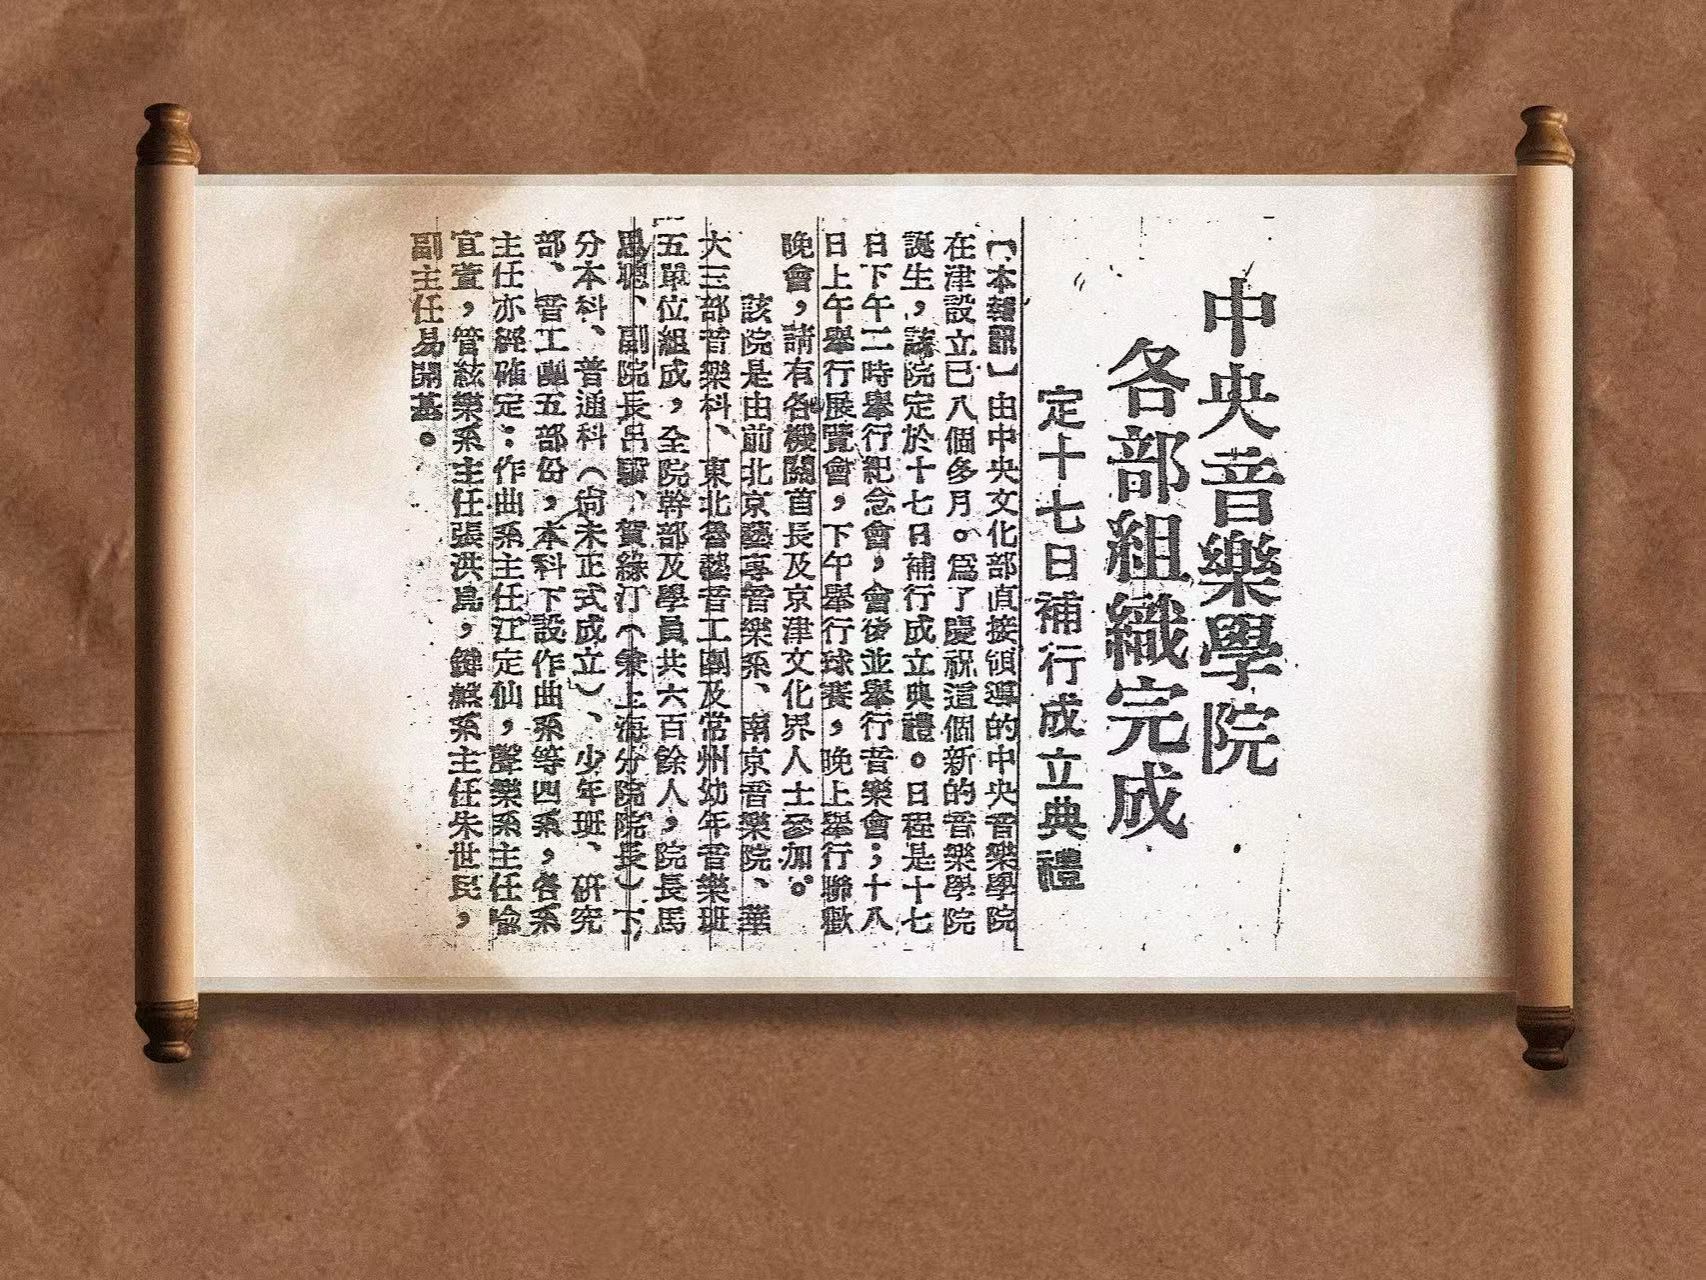 中央音樂學院
各部組織完成
定十七日補行成立典禮
【本報訊】由中央文化部直接領導的中央音樂學院
在津設立已八個多月。為了慶祝這個新的音樂學院
誕生，該院定於十七日補行成立典禮。日程是十七
日下午二時舉行紀念會，會後並舉行音樂會；十八
日上午舉行展覽會，下午舉行球賽，晚上舉行聯歡
晚會，請有各機關首長及京津文化界人士參加。
該院是由前北京藝專音樂系、南京音樂院、華
大三部音樂科、東北魯藝音工團及常州幼年音樂班
五單位組成，全院幹部及學員共六百餘人，院長馬
思聰、副院長呂驥、賀綠汀（兼上海分院院長）下
分本科、普通科（尚未正式成立）、少年班、研究
部、音工團五部份，本科下設作曲系等四系，各系
主任亦經確定：作曲系主任江定仙，聲樂系主任喻
宜萱，管絃樂系主任張洪島，鍵盤系主任朱世民，
副主任易開基。